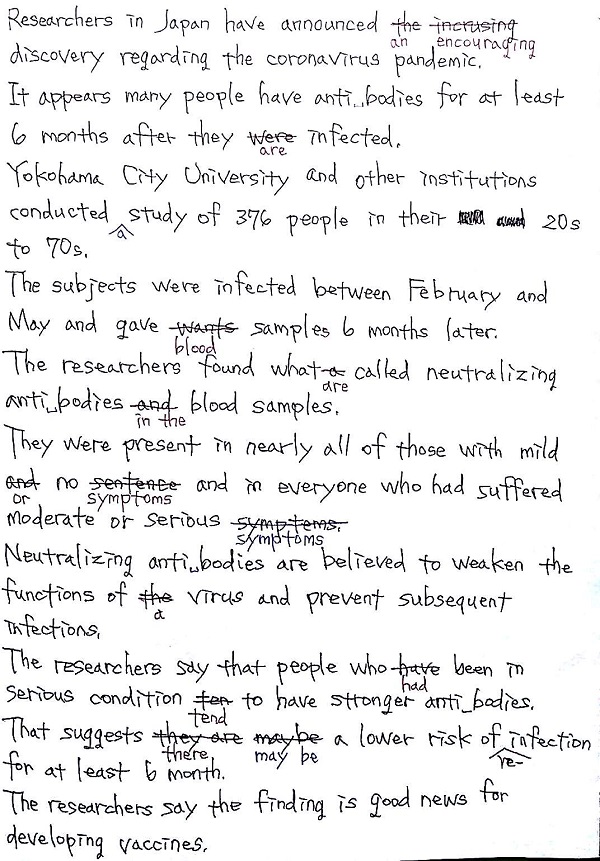 Researchers in Japan have announced the incrusing
an encouraging
discovery regarding the coronavirus pandemic.
It appears many people have anti_bodies for at least
6 months after they were infected.
are
Yokohama City University and other institutions
conducted study of 376 people in their 20s
a
to 70s.
The subjects were infected between February and
May and gave wants samples 6 months later.
blood
The researchers found what a called neutralizing
are
anti_bodies and blood samples.
in the
They were present in nearly all of those with mild
and no sentence and in everyone who had suffered
or symptoms
moderate or serious symptems.
symptoms
Neutralizing anti_bodies are believed to weaken the
functions of the virus and prevent subsequent
a
infections.
The researchers say that people who have been in
had
serious condition ten to have stronger anti_bodies.
tend
That suggests they are maybe a lower risk of infection
there may be re-
for at least 6 month.
The researchers say the finding is good news for
developing vaccines.